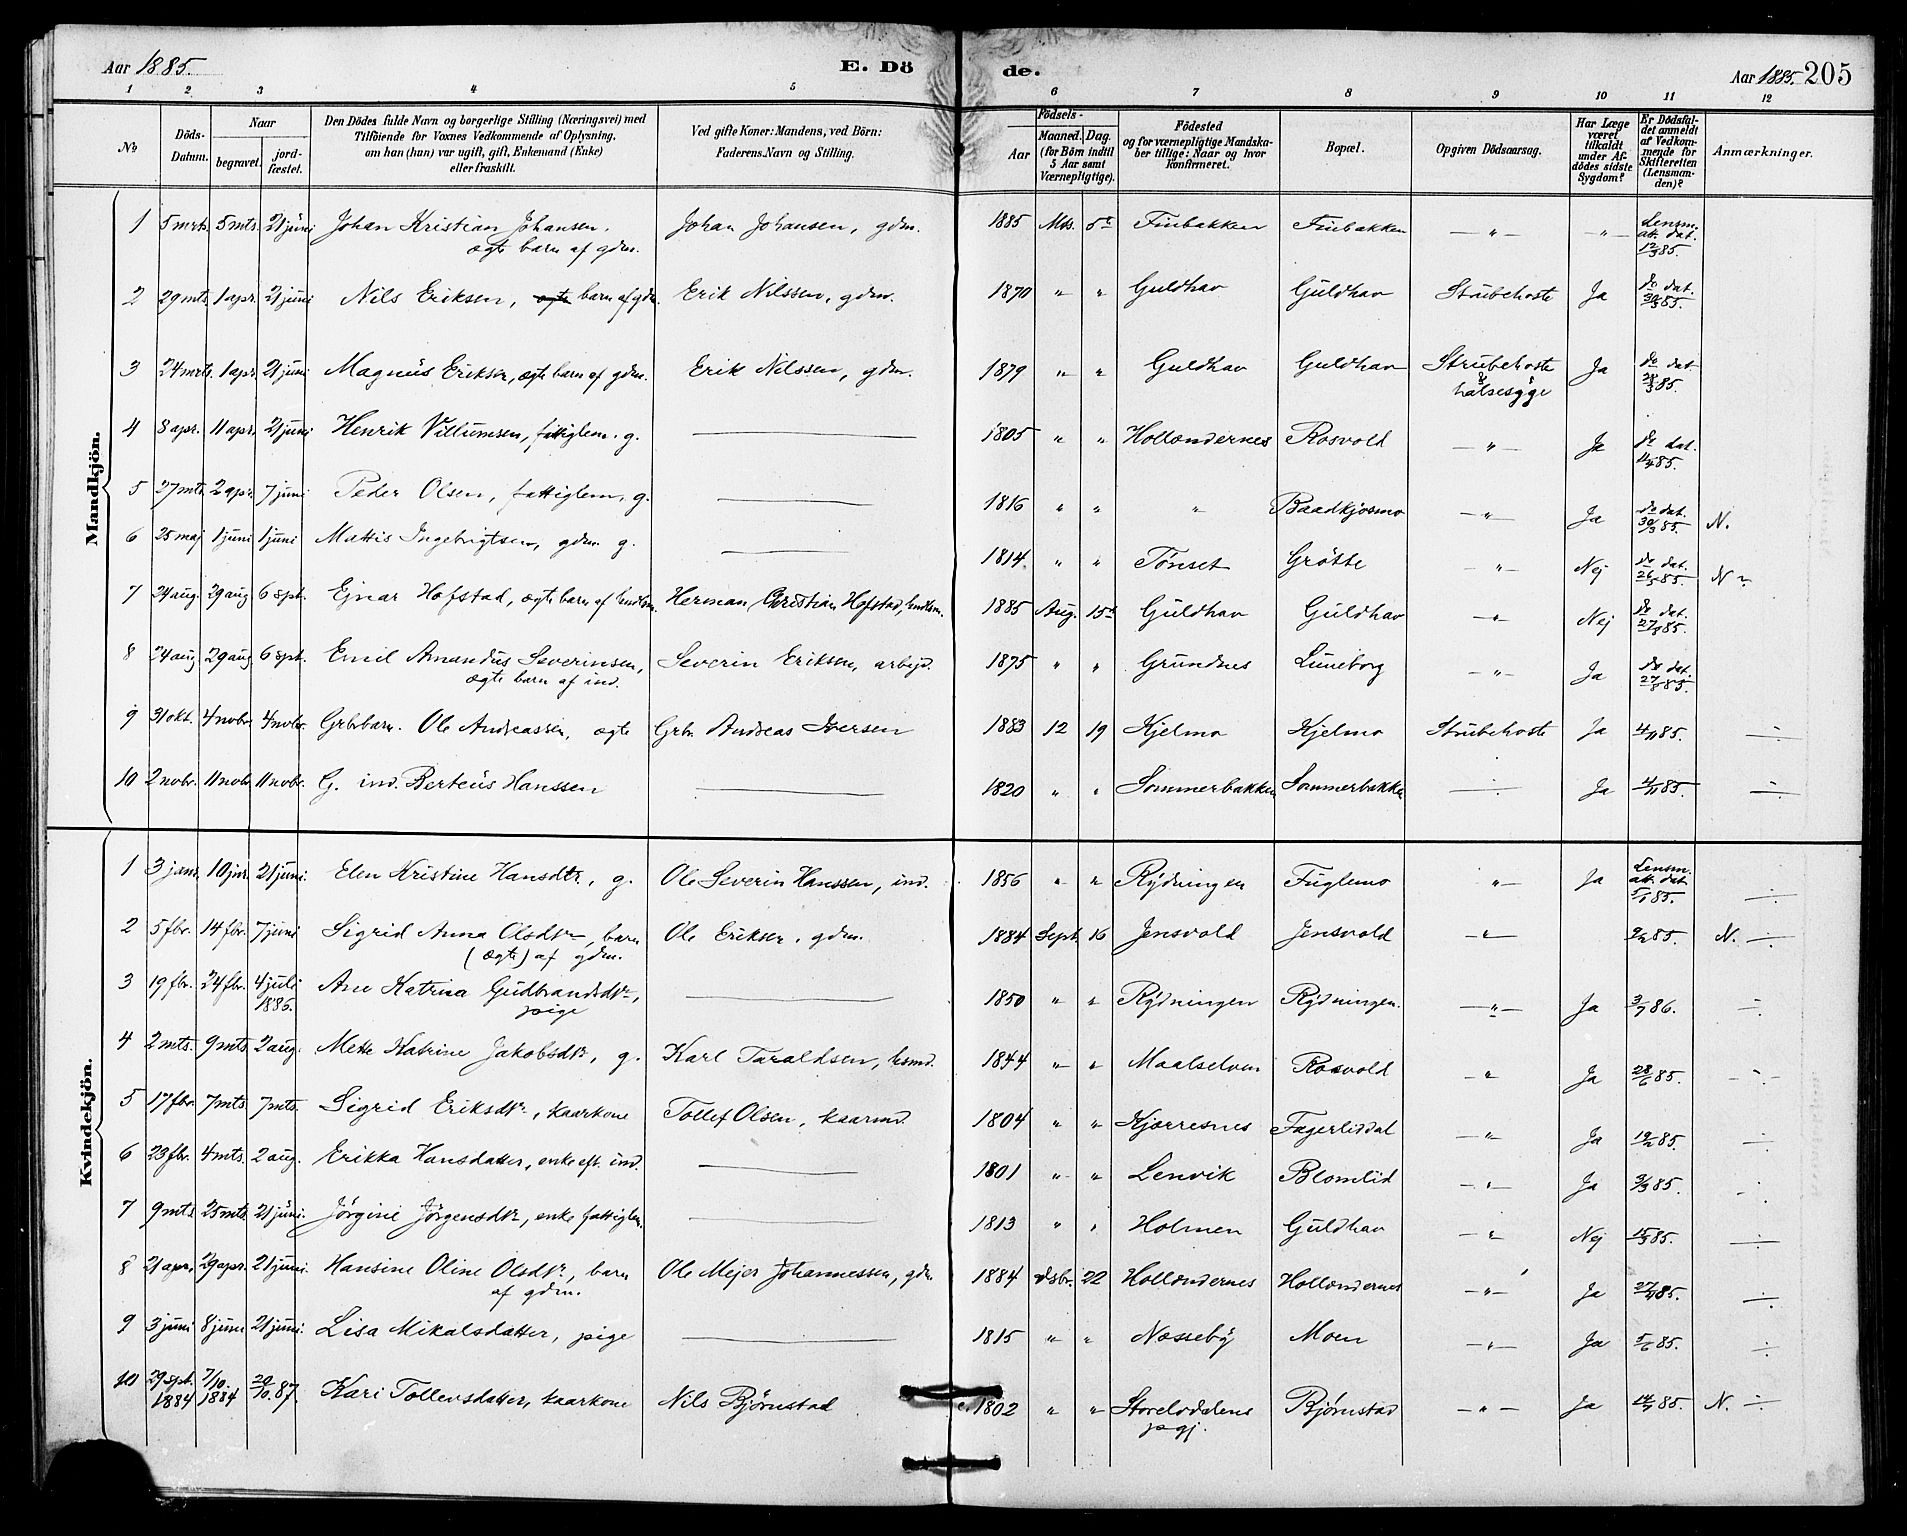 Aar 1885. E. Dö de. Aar 1885. 205
1 2 3 4 5 6 7 8 9 10 11 12
No Döds-Datum. Naar begravet. jordfæstet. Den Dödes fulde Navn og borgerlige Stilling (Næringsvei) med Tilföiende for Voxnes Vedkommende af Oplysning, om han (hun) var ugift, gift, Enkemand (Enke) eller fraskilt. Ved gifte Koner: Mandens, ved Börn: Faderens Navn og Stilling. Födsels- Aar Maaned. Dag. (for Börn indtil 5 Aar samt Værnepligtige). Födested og for værnepligtige Mandskaber tillige: Naar og hvor konfirmeret. Bopæl. Opgiven Dödsaarsag. Har Læge været tilkaldt under Afdödes sidste Sygdom? Er Dödsfaldet anmeldt af Vedkommende for Skifteretten (Lensmanden)? Anmærkninger.
Mandkjön.
1 5 mrts. 5 mts. 21 juni Johan Kristian Johansen, ægte barn af gdm. Johan Johansen, gdm. 1885 Mts. 5te Finbakken Finbakken — " — — " — Lensm. att. dat. 12/3 85.
2 29 mts. 1 apr. 21 juni Nils Eriksen, ægte barn af gdm. Erik Nilssen, gdm. 1870 " " Guldhav Guldhav Strubehoste Ja do dat. 30/3 85.
3 24 mrts. 1 apr. 21 juni Magnus Eriksen, ægte barn af gdm. Erik Nilssen, gdm. 1879 " " Guldhav Guldhav Strubehoste & halsesyge Ja do dat. 28/3 85.
4 8 apr. 11 apr. 21 juni Henrik Villumsen, fattiglem. g. ——— 1805 " " Hollændernes Rosvold — " — Ja do dat. 11/4 85.
5 27 mts. 2 apr. 7 juni Peder Olsen, fattiglem, g. ——— 1816 " " " Baadkjosmo — " — Ja do dat. 30/3 85. N.
6 25 maj 1 juni 1 juni Mattis Ingebrigtsen, gdm. g. ——— 1814. " " Tønset Grøtte — " — Nej do dat. 26/5 85. N
7 24 aug 29 aug 6 spt. Ejnar Hofstad, ægte barn af hndlsm. Herman Christian Hofstad, hndlsm. 1885 Aug. 15de Guldhav Guldhav — " — Nej do dat. 27/8 85.
8 24 aug 29 aug 6 spt. Emil Amandus Severinsen, ægte barn af ind. Severin Eriksen, arbejd. 1875 " " Grundnes Luneborg — " — Ja do dat. 27/8 85.
9 31 okt. 4 nobr. 4 nobr. Grbr.barn. Ole Andreassen, ægte Grbr. Andreas Iversen 1883 12 19 Kjelmo Kjelmo Strubehoste Ja 4/11 85. ÷
10 2 nobr. 11 nobr. 11 nobr. G. ind. Berteus Hanssen ——— 1820 " " Sommerbakken Sommerbakken ÷ Ja 4/11 85. ÷
Kvindekjön.
1 3 janr. 10 jnr. 21 juni. Elen Kristine Hansdtr, g. Ole Severin Hanssen, ind. 1856 " " Rydningen Fuglemo — " — Ja Lensm. att. dat 5/1 85. ÷
2 5 fbr. 14 fbr. 7 juni Sigrid Anna Olsdtr, barn (ægte) af gdm. Ole Eriksen, gdm. 1884 Sept. 16 Jensvold Jensvold — " — 9/2 85. N. ÷
3 19 fbr. 24 fbr. 4 juli 1886. Ane Katrina Gudbrandsdtr, pige ——— 1850 " " Rydningen Rydningen. — " — Ja 3/7 86. ÷
4 2 mts. 9 mts. 2 aug. Mette Katrine Jakobsdtr, g. Karl Taraldsen, hsmd. 1844 " " Maalselven Rosvold — " Ja 28/6 85. ÷
5 17 fbr. 7 mts. 7 mts. Sigrid Eriksdtr, kaarkone Tollef Olsen, kaarmd. 1804 " " Kjærresnes Fagerliddal — " — Ja 19/2 85. ÷
6 23 fbr. 4 mts. 2 aug. Erikka Hansdatter, enke eft. ind. ——— 1801 " " Lenvik Blomlid — " — Ja 3/3 85. ÷
7 9 mts 25 mts. 21 juni. Jørgine Jörgensdtr, enke fattiglem. ——— 1813 " " Holmen Guldhav — " Nej 15/3 85. ÷
8 21 apr. 29 apr. 21 juni. Hansine Oline Olsdtr, barn af gdm. Ole Mejer Johannessen, gdm 1884 dsbr. 22 Hollændernes Hollændernes — " — Ja 27/4 85. ÷
9 3 juni 8 juni 21 juni. Lisa Mikalsdatter, pige ——— 1815 " " Næsseby Moen — " — Ja 5/6 85. ÷
10 29 spt. 1884 7/10. 1884 20/10. 87. Kari Tollevsdatter, kaarkone Nils Bjørnstad c. 1802 " " Storelvdalens pgj. Bjørnstad — " — Ja 14/7 85. N. ÷